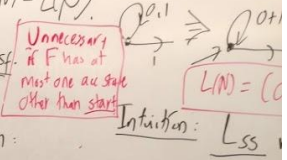 = L(N).
0,1
0+1
Unnecessary
if F has at
most one acc state
other than start
1
L(N) = (
Intuition: Lss